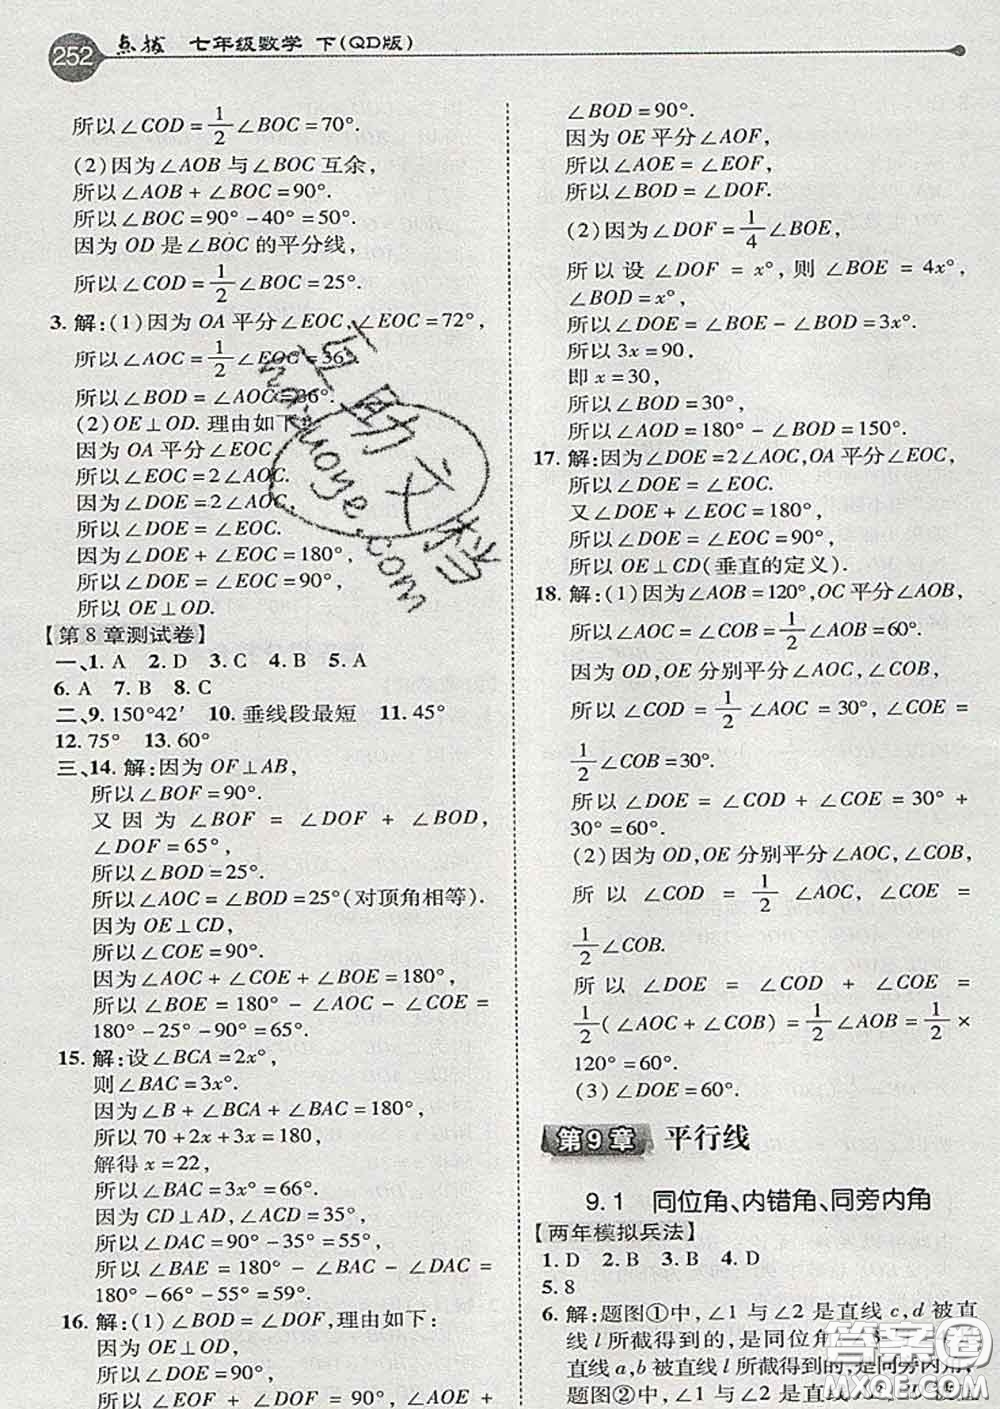 252 点拨 七年级数学 下(QD版)
所以∠COD=1/2∠BOC=70°.
(2)因为∠AOB与∠BOC互余,
所以∠AOB+∠BOC=90°.
所以∠BOC=90°-40°=50°.
因为OD是∠BOC的平分线,
所以∠COD=1/2∠BOC=25°.
3.解:(1)因为OA平分∠EOC,∠EOC=72°,
所以∠AOC=1/2∠EOC=36°.
所以∠BOD=∠AOC=36°.
(2)OE⊥OD.理由如下:
因为OA平分∠EOC,
所以∠EOC=2∠AOC.
因为∠DOE=2∠AOC,
所以∠DOE=∠EOC.
因为∠DOE+∠EOC=180°,
所以∠DOE=∠EOC=90°,
所以OE⊥OD.
【第8章测试卷】
一、1. A 2. D 3. C 4. B 5. A
6. A 7. B 8. C
二、9. 150°42′ 10. 垂线段最短 11. 45°
12. 75° 13. 60°
三、14. 解:因为OF⊥AB,
所以∠BOF=90°.
又因为∠BOF=∠DOF+∠BOD,
∠DOF=65°,
所以∠BOD=25°.
所以∠AOC=∠BOD=25°(对顶角相等).
因为OE⊥CD,
所以∠COE=90°.
因为∠AOC+∠COE+∠BOE=180°,
所以∠BOE=180°-∠AOC-∠COE=
180°-25°-90°=65°.
15. 解:设∠BCA=2x°,
则∠BAC=3x°.
因为∠B+∠BCA+∠BAC=180°,
所以70+2x+3x=180,
解得x=22,
所以∠BAC=3x°=66°.
因为CD⊥AD,∠ACD=35°,
所以∠DAC=90°-35°=55°,
所以∠BAE=180°-∠BAC-∠DAC=
180°-66°-55°=59°.
16. 解:(1)∠BOD=∠DOF,理由如下:
因为∠BOE=90°,
所以∠EOF+∠DOF=90°,∠AOE+
∠BOD=90°.
因为OE平分∠AOF,
所以∠AOE=∠EOF,
所以∠BOD=∠DOF.
(2)因为∠DOF=1/4∠BOE,
所以设∠DOF=x°,则∠BOE=4x°,
∠BOD=x°.
所以∠DOE=∠BOE-∠BOD=3x°.
所以3x=90,
即x=30,
所以∠BOD=30°,
所以∠AOD=180°-∠BOD=150°.
17. 解:因为∠DOE=2∠AOC,OA平分∠EOC,
所以∠DOE=∠EOC.
又∠DOE+∠EOC=180°,
所以∠DOE=∠EOC=90°,
所以OE⊥CD(垂直的定义).
18. 解:(1)因为∠AOB=120°,OC平分∠AOB,
所以∠AOC=∠COB=1/2∠AOB=60°.
因为OD,OE分别平分∠AOC,∠COB,
所以∠COD=1/2∠AOC=30°,∠COE=
1/2∠COB=30°.
所以∠DOE=∠COD+∠COE=30°+
30°=60°.
(2)因为OD,OE分别平分∠AOC,∠COB,
所以∠COD=1/2∠AOC,∠COE=
1/2∠COB.
所以∠DOE=∠COD+∠COE=
1/2(∠AOC+∠COB)=1/2∠AOB=1/2×
120°=60°.
(3)∠DOE=60°.
第9章 平行线
9.1 同位角、内错角、同旁内角
【两年模拟兵法】
1. D 2. B 3. B 4. D
5. 8
6. 解:题图①中,∠1与∠2是直线c,d被直
线l所截得到的,是同位角
直线a,b被直线l所截得到的,是同旁内角.
题图②中,∠1与∠2是直线
互助文档
huzhuoye.com
答案圈
MXQE.COM